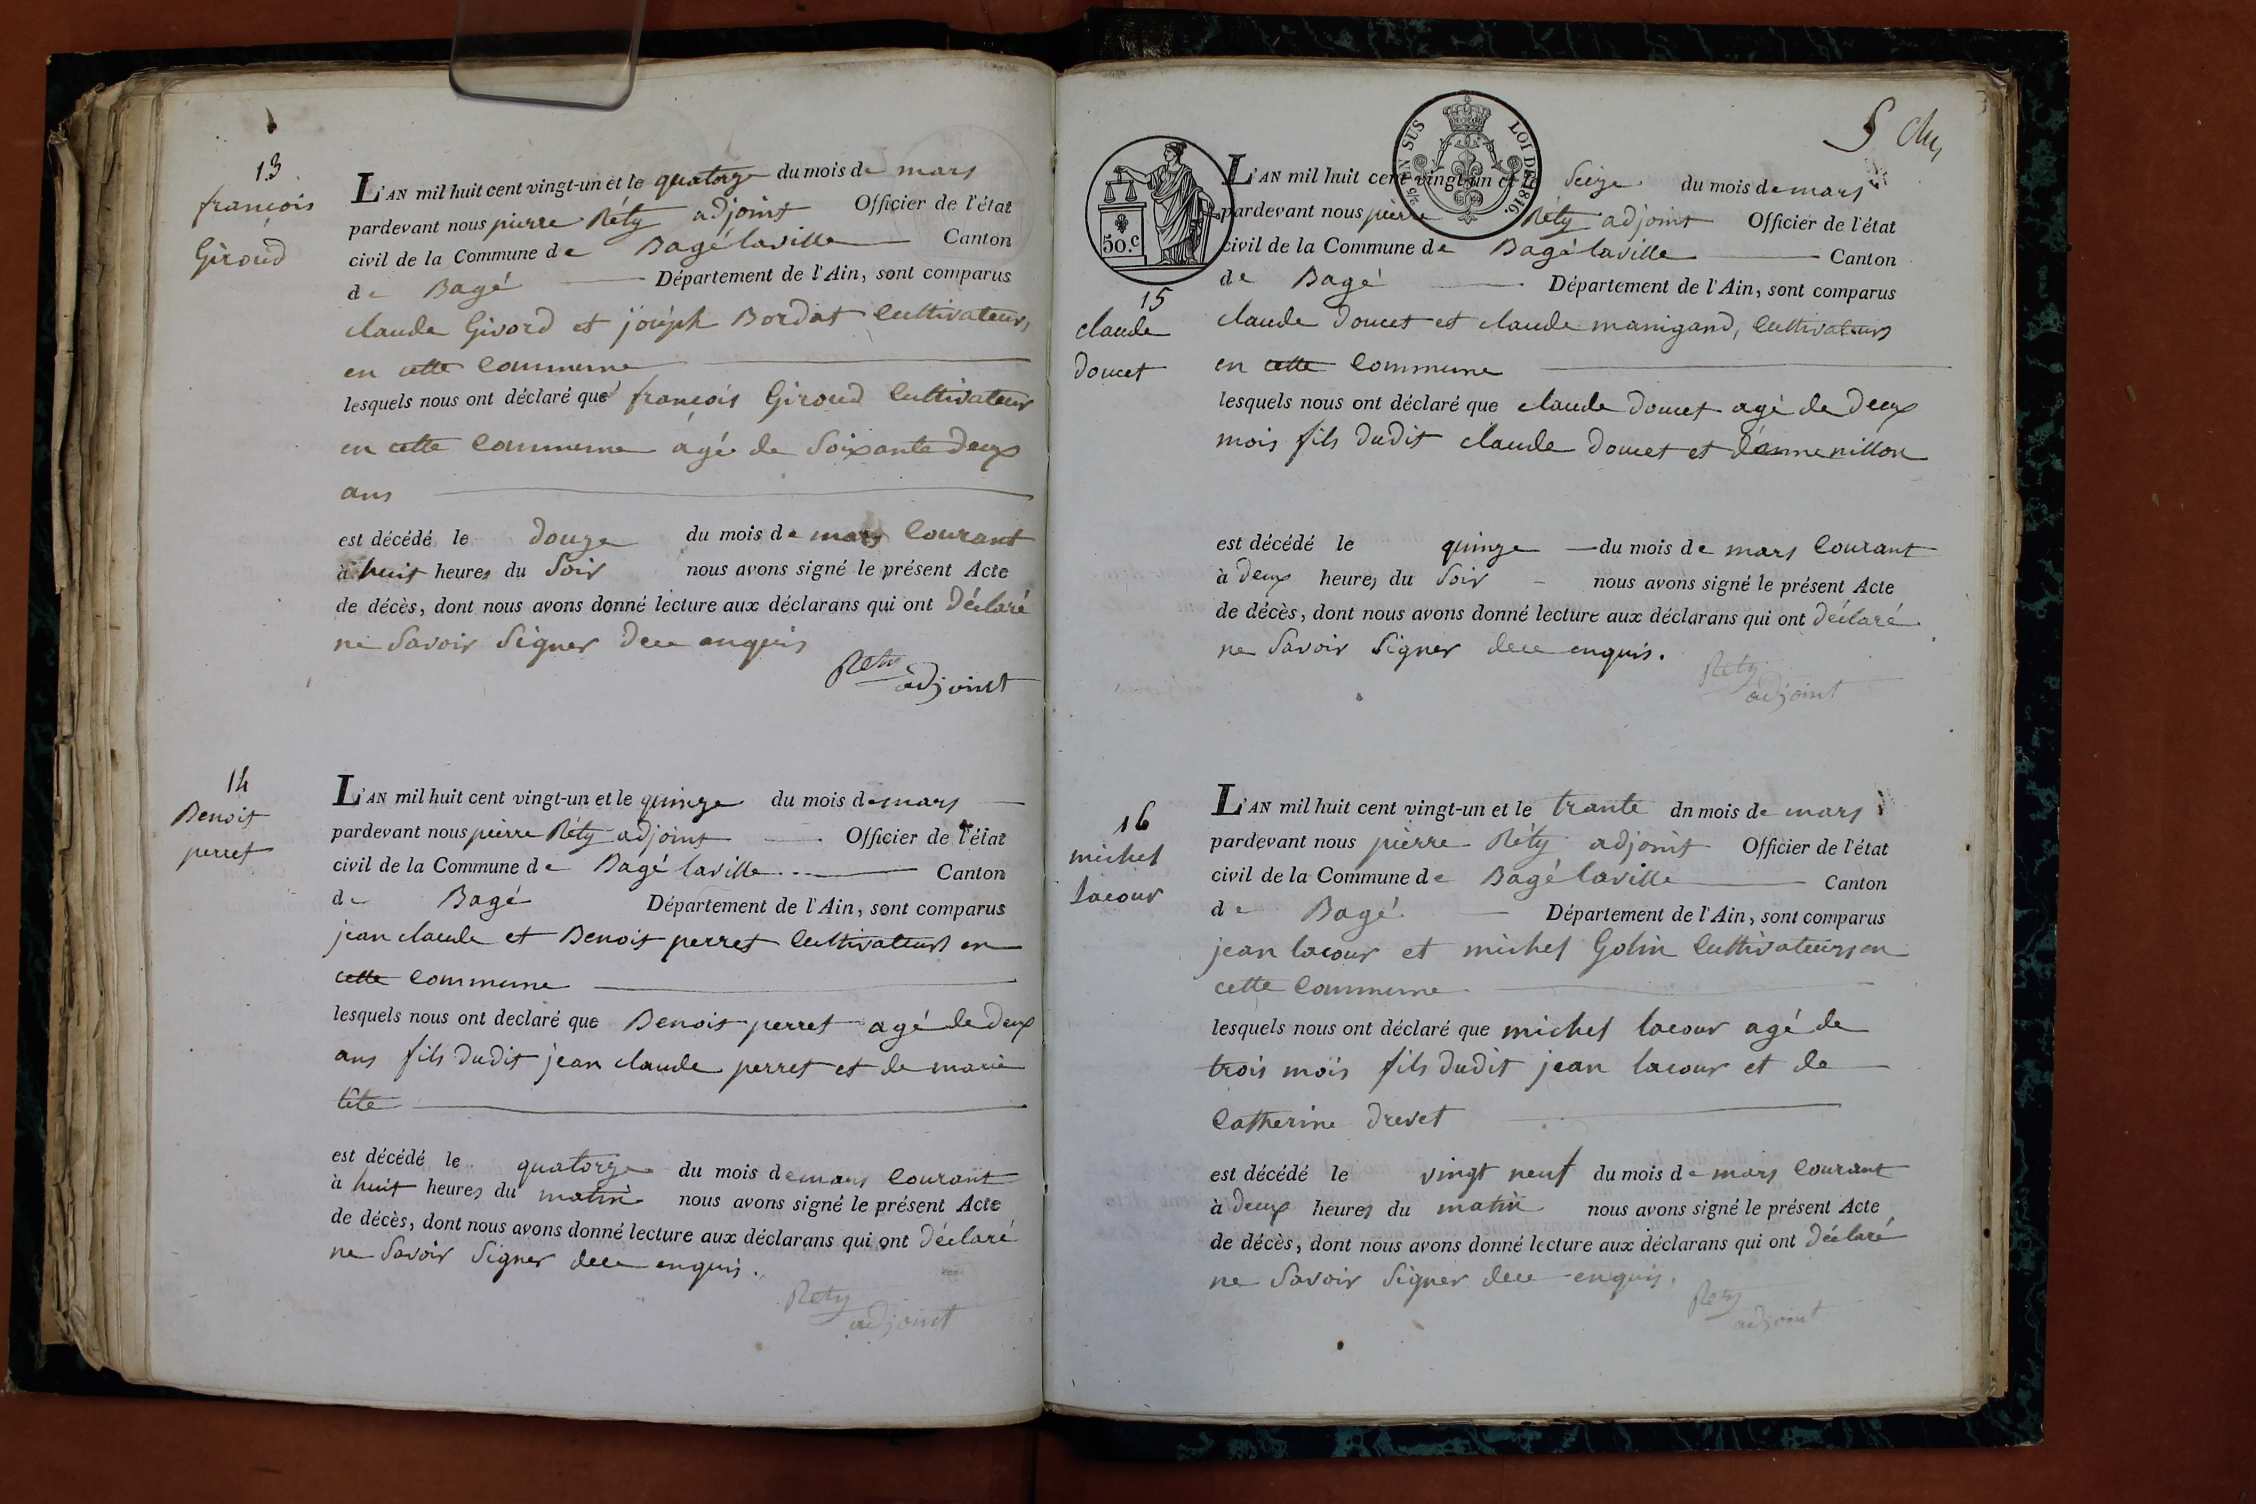 13
françois
Giroud
L'AN mil huit cent vingt-un et le quatorze du mois de mars
pardevant nous pierre Réty adjoint Officier de l'état
civil de la Commune de Bagé laville Canton
de Bagé Département de l'Ain, sont comparus
claude Givord et joseph Bordat Cultivateurs
en cette Commune
lesquels nous ont déclaré que françois Giroud Cultivateur
en cette Commune agé de Soixante deux
ans
est décédé le douze du mois de mars Courant
à huit heures du Soir nous avons signé le présent Acte
de décès, dont nous avons donné lecture aux déclarans qui ont déclaré
ne Savoir Signer dece enquis
Rety
adjoint
14
Benoit
perret
L'AN mil huit cent vingt-un et le quinze du mois de mars
pardevant nous pierre Réty adjoint Officier de l'état
civil de la Commune de Bagé laville Canton
de Bagé Département de l'Ain, sont comparus
jean claude et Benoit perret Cultivateurs en
cette Commune
lesquels nous ont declaré que Benoit perret agé de deux
ans fils dudit jean claude perret et de marie
tête
est décédé le quatorze du mois de mars Courant
à huit heures du matin nous avons signé le présent Acte
de décès, dont nous avons donné lecture aux déclarans qui ont déclaré
ne Savoir Signer dece enquis.
Rety
adjoint
5
50.c
5/10 EN SUS LOI DE 1816.
15
claude
doucet
L'AN mil huit cent vingt-un et le Seize du mois de mars
pardevant nous pierre Réty adjoint Officier de l'état
civil de la Commune de Bagé laville Canton
de Bagé Département de l'Ain, sont comparus
claude doucet et claude manigand, Cultivateurs
en cette Commune
lesquels nous ont déclaré que claude doucet agé de deux
mois fils dudit claude doucet et d'anne nillon
est décédé le quinze du mois de mars Courant
à deux heures du Soir nous avons signé le présent Acte
de décès, dont nous avons donné lecture aux déclarans qui ont déclaré
ne Savoir Signer dece enquis.
Rety
adjoint
16
michel
lacour
L'AN mil huit cent vingt-un et le trante dn mois de mars
pardevant nous pierre Réty adjoint Officier de l'état
civil de la Commune de Bagé laville Canton
de Bagé Département de l'Ain, sont comparus
jean lacour et michel Golin Cultivateurs en
cette Commune
lesquels nous ont déclaré que michel lacour agé de
trois mois fils dudit jean lacour et de
Catherine drevet
est décédé le vingt neuf du mois de mars Courant
à deux heures du matin nous avons signé le présent Acte
de décès, dont nous avons donné lecture aux déclarans qui ont déclaré
ne Savoir Signer dece enquis.
Rety
adjoint